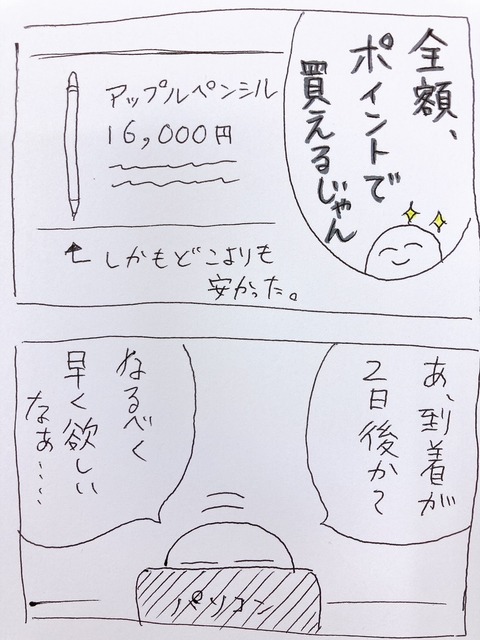 全額、
ポイントで
買えるじゃん
アップルペンシル
16,000円
しかもどこよりも
安かった。
あ、到着が
2日後かて
なるべく
早く欲しい
なぁ‥‥
パソコン